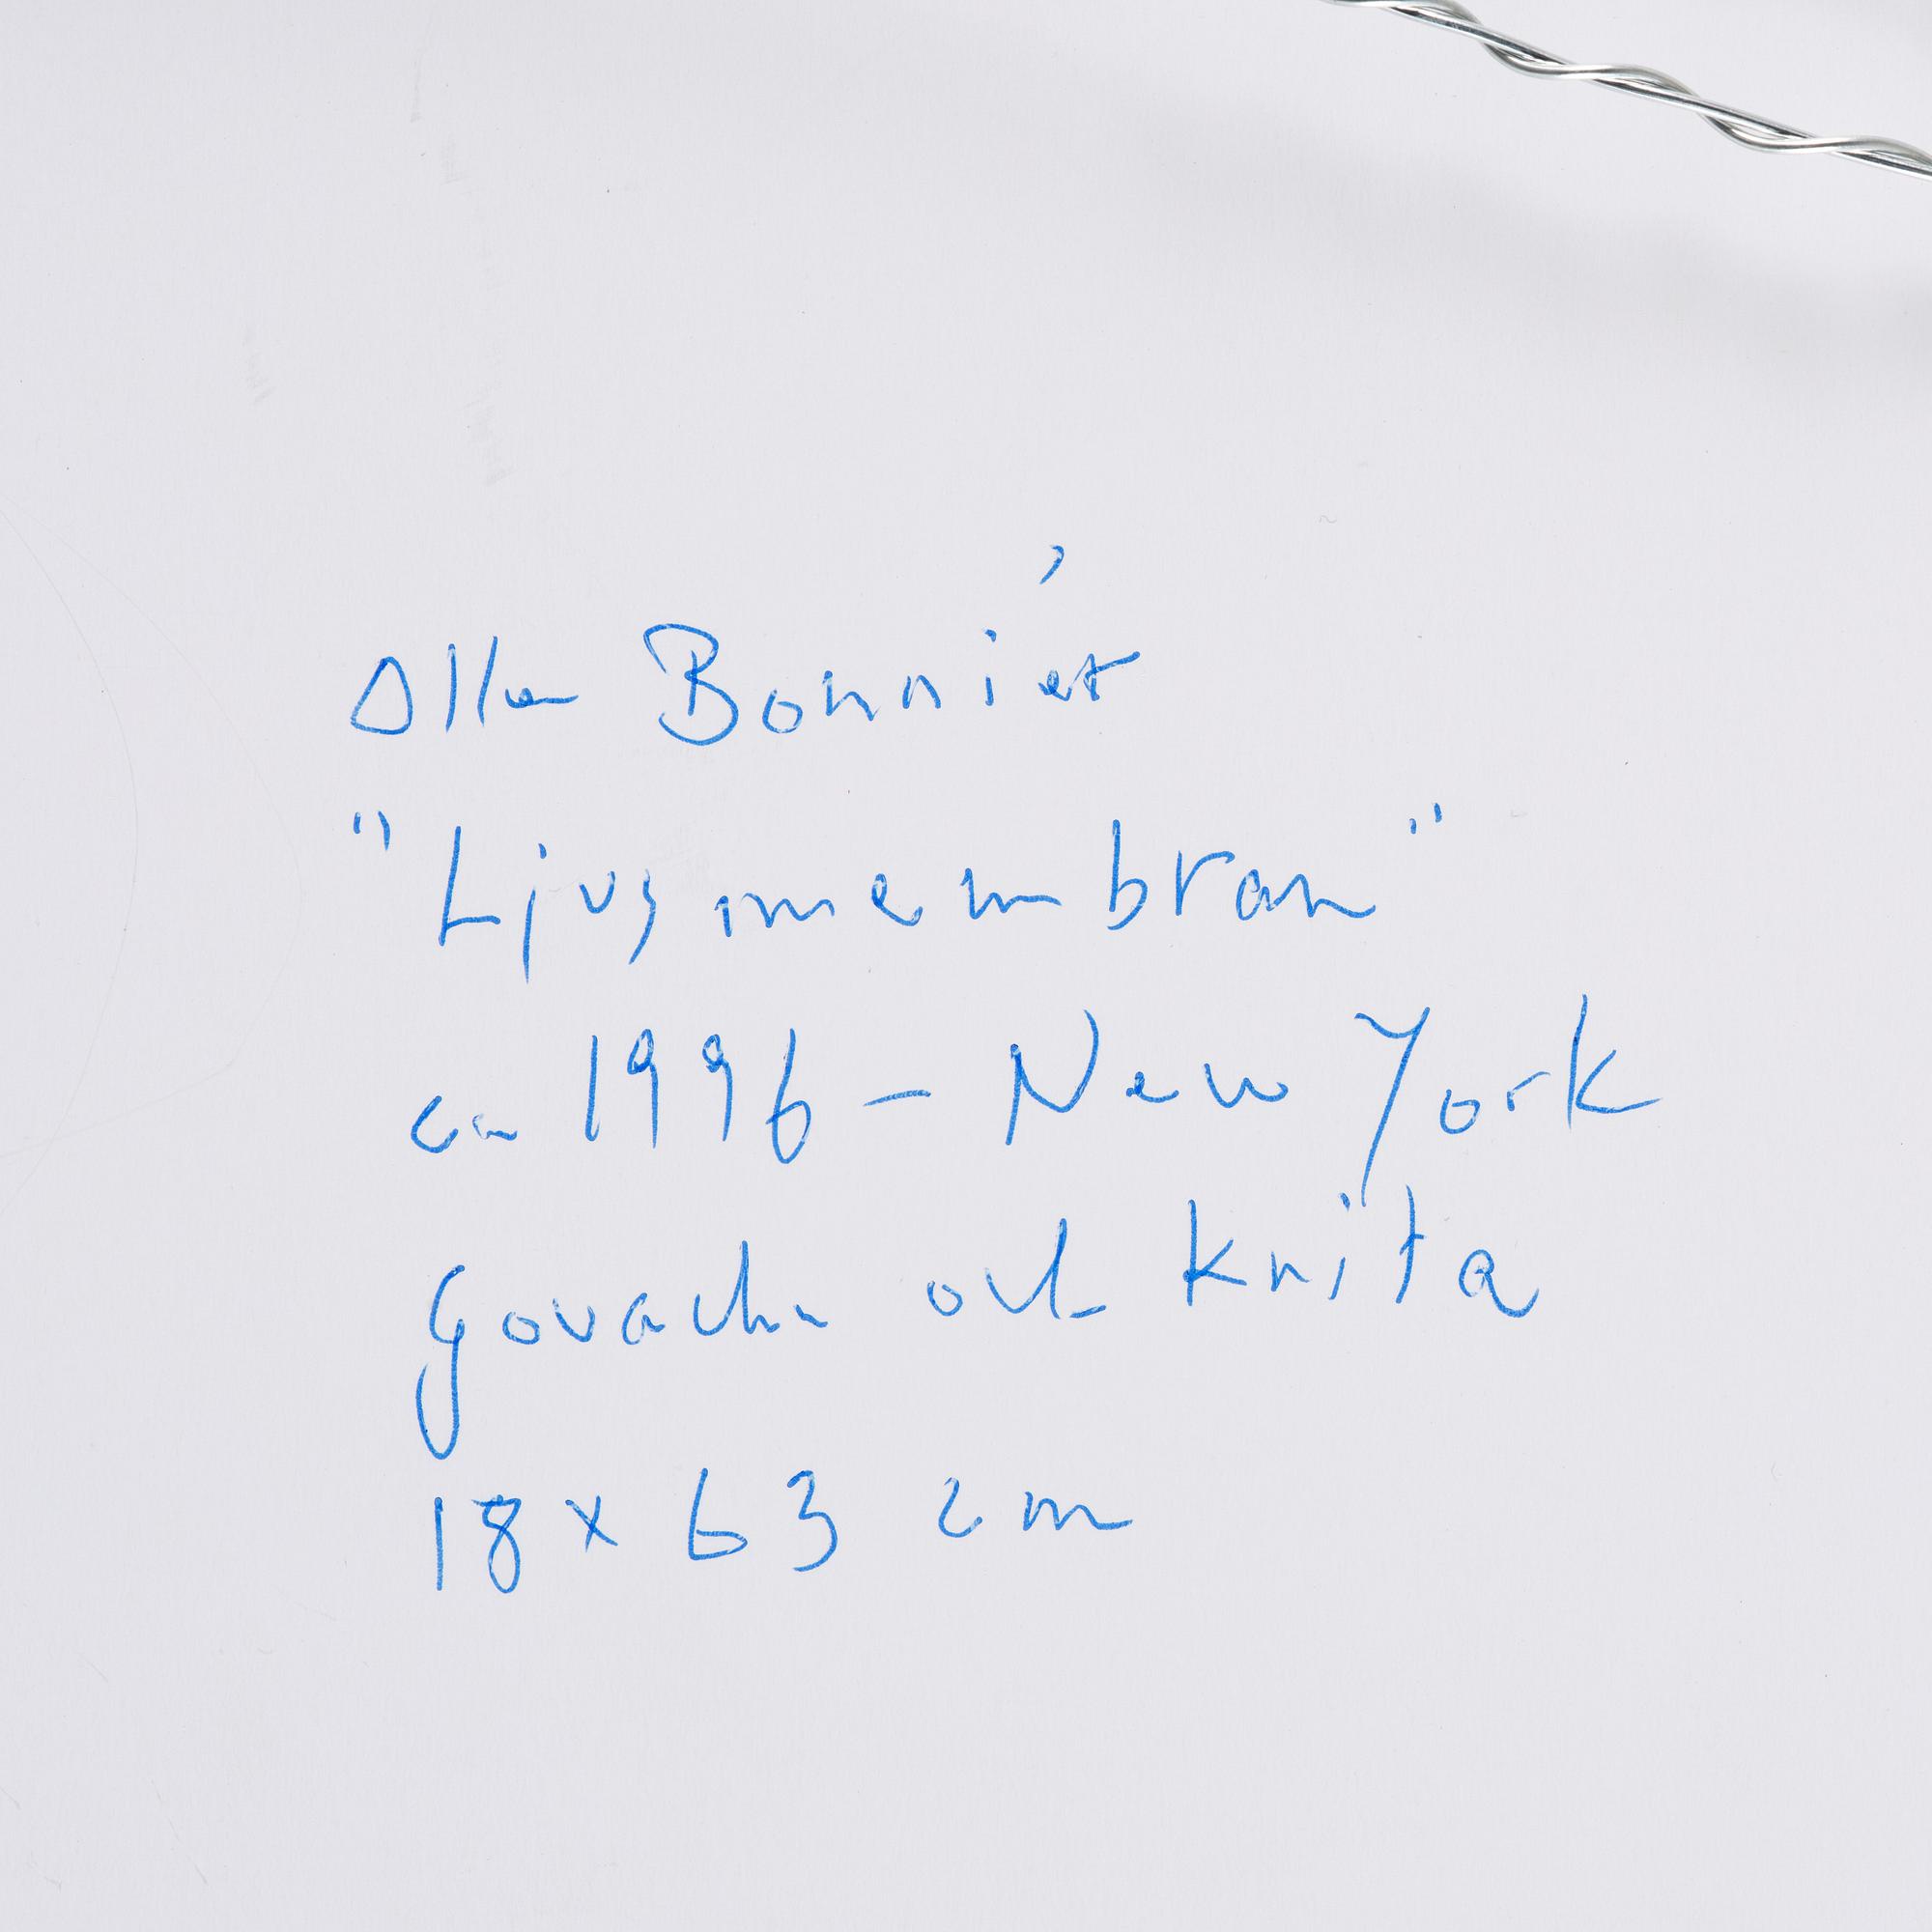 Olle Bonniér
"Ljusmembran"
ca 1996 – New York
Gouache och krita
18 x 63 cm